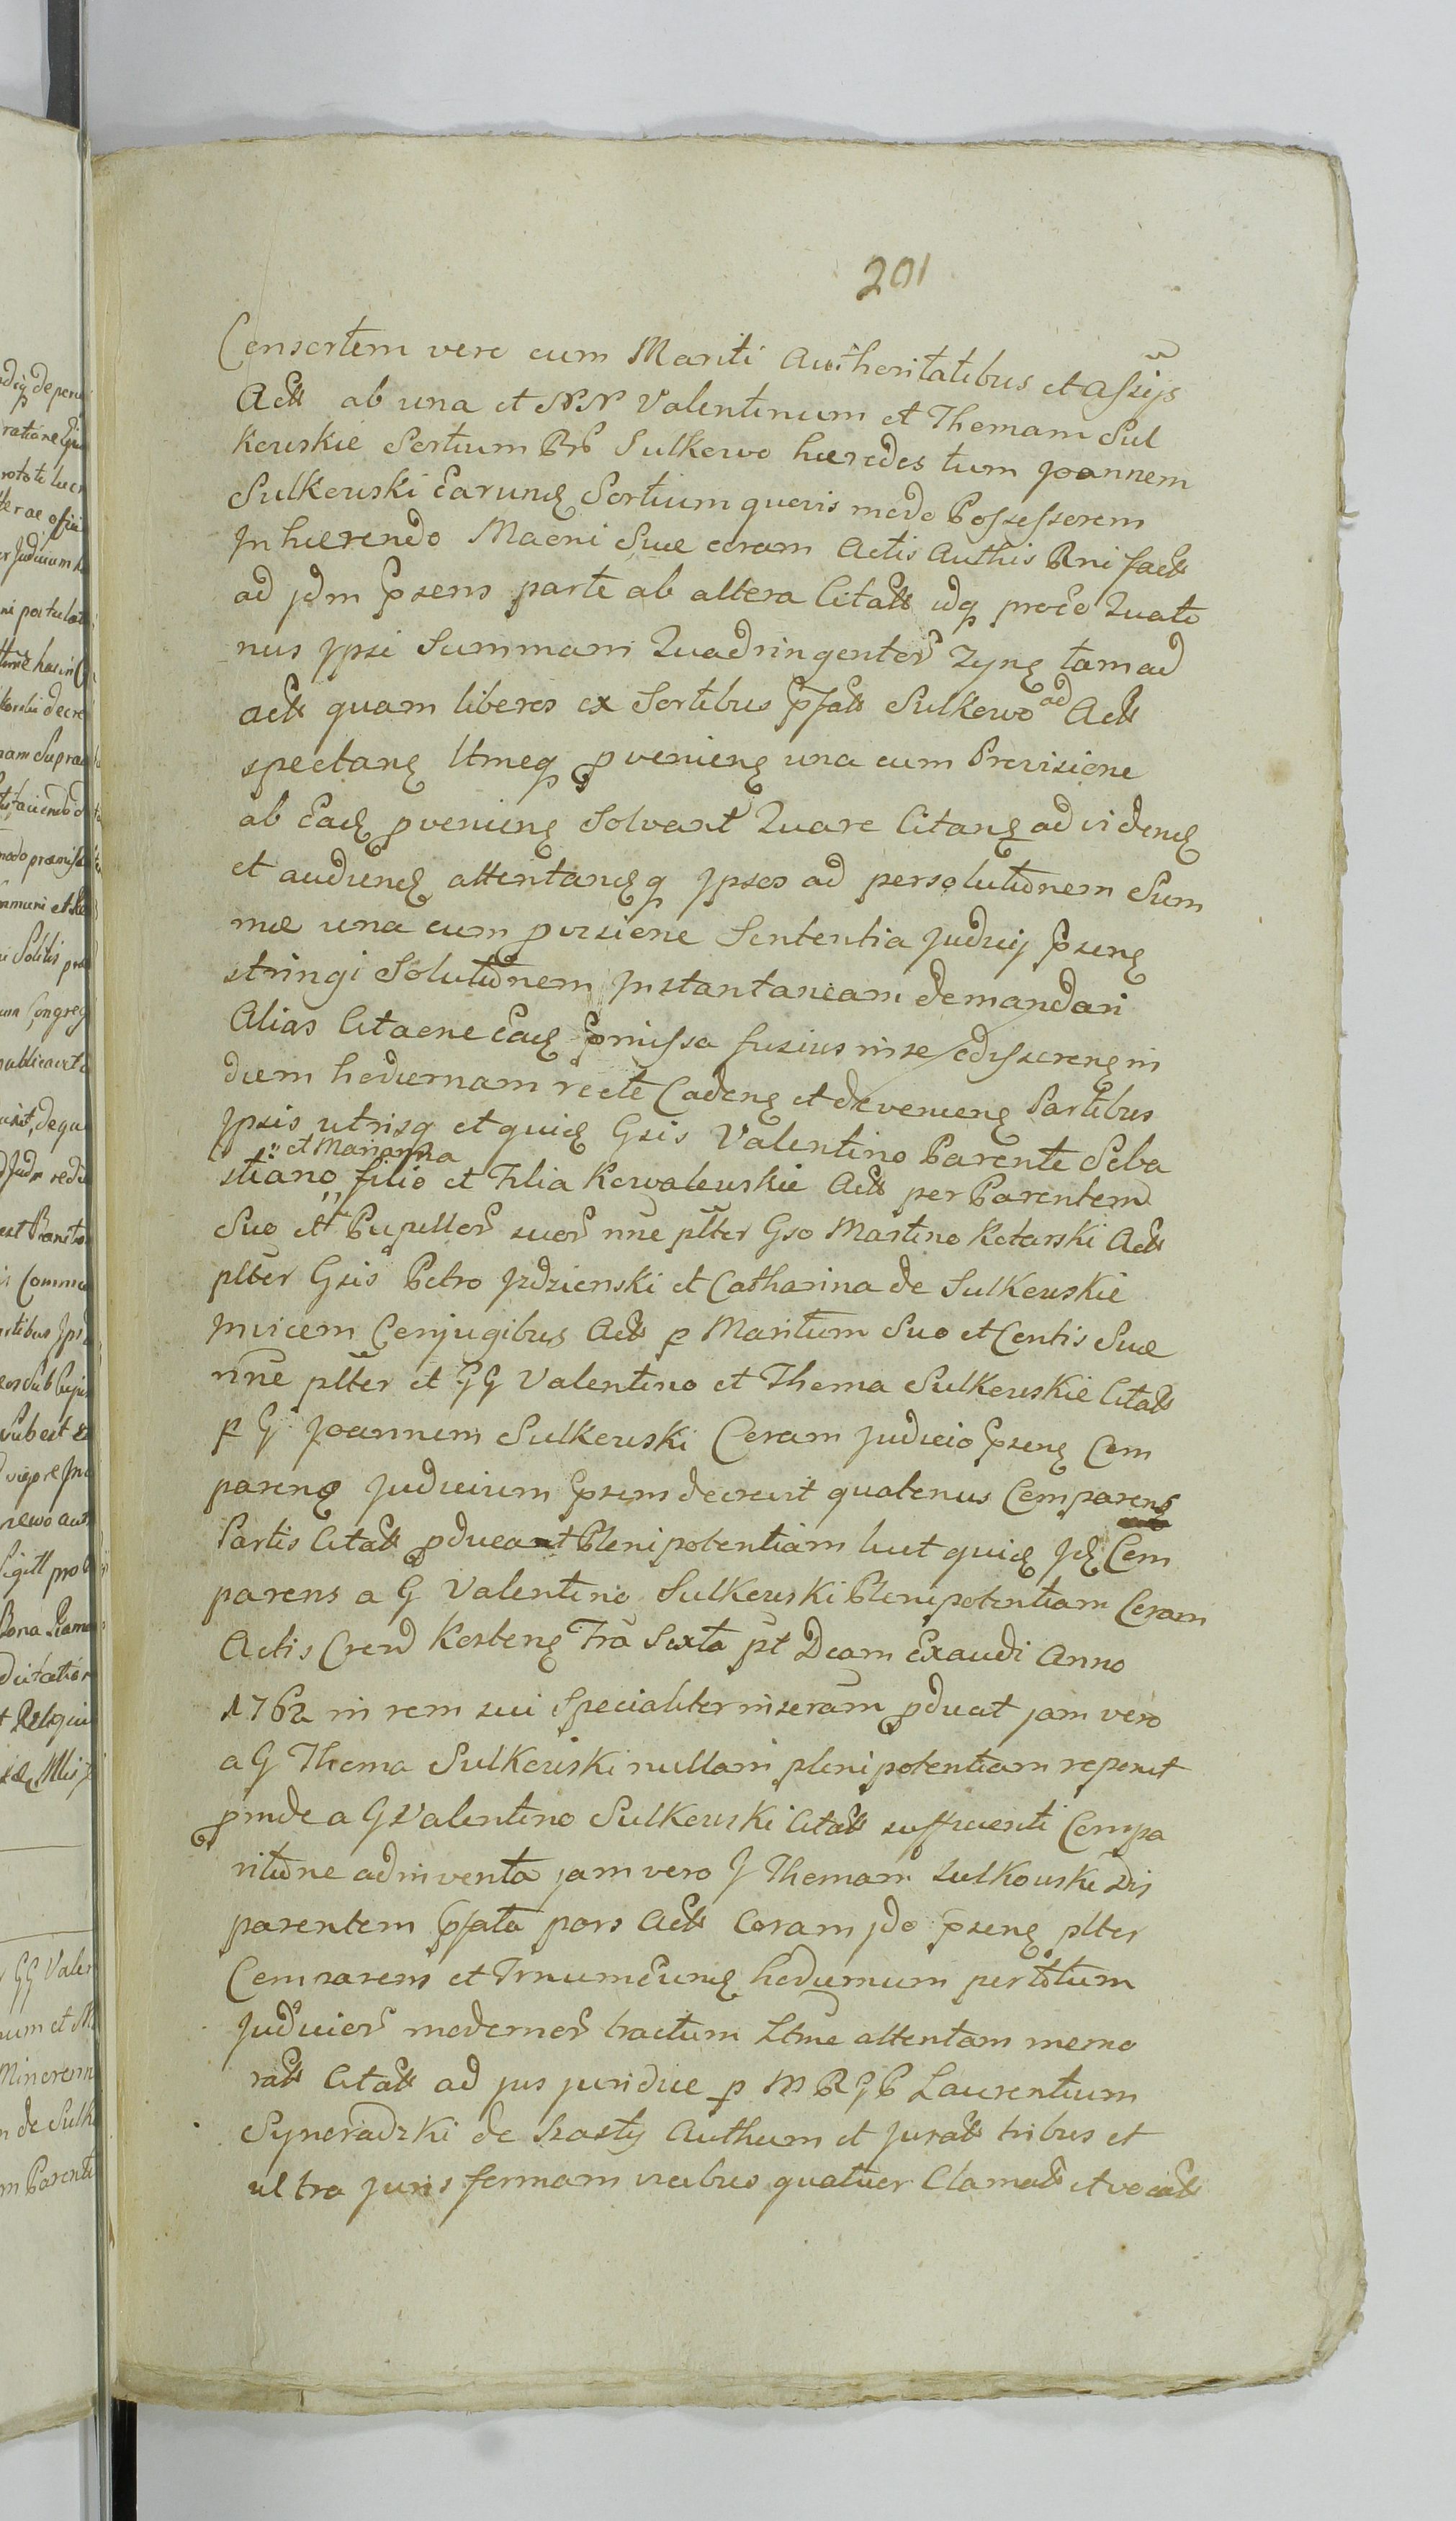 201
Consortem vero cum Mariti Authoritatibus et assijs
Actt ab una et NN Valentinum et Thomam Sul
kowskie Sortium Brr Sulkowo hæredes tum Joannem
Sulkowski Earunq Sortium quovis modo Possessorem
Inhærendo Maoni Suæ coram Actis Authis Rni factt
ad jdm Prsens parte ab altera Citatt idq proco Quate
nus Ipsi Summam Quadringentor Zynq tam ad
actt quam liberos ex Sortibus Prfatt Sulkowo ad Actt
spectanq ltmeq pvenienq una cum Provisione
ab Eadq pvenienq Solvant Quare Citanq ad videndq
et audiendq attentandq q Ipsos ad persolutionem Sum
mæ una cum pvisione Sententia Judicij Prsenq
stringi Solutionem Instantaneam demandari
Alias Citaone Eadq Prmissa fusius in se edisserenq in
diem hodiernam recte Cadenq et devenienq Partibus
Ipsis utrisq et quidq Gsis Valentino Parente Seba
stiano et Marianna filio et Filia Kowalewskie Actt per Parentem
Suo ett Pupillor suor nne plter Gso Martino Kotarski Actt
plter Gsis Petro Jzdzienski et Catharina de Sulkowskie
Invicem Conjugibus Actt p Maritum Suo et Contis Suæ
nne plter et GG Valentino et Thoma Sulkowskie Citatt
p G Joannem Sulkowski Coram Judicio Prsenq Com
parenq Judicium Prsens decrevit quatenus Comparens
Partis Citatt pducat Plenipotentiam hut quidq Idq Com
parens a G Valentino Sulkowski Plenipotentiam Coram
Actis Crend Kosten q Fria Sexta pt Dcam Exaudi Anno
1762 in rem sui Specialiter inseram pducit jam vero
a G Thoma Sulkowski nullam plenipotentiam reponit
pinde a G Valentino Sulkowski Citatt sufficienti Compa
ritione adinventa jam vero G Thomam Sulkowski Dis
parentem Prfata pars Actt Coram jdo Prsenq plter
Comparens et Trnum Eunq hodiernum per totum
Judicior modernor tractum Ltme attentam memo
ratt Citatt ad jus juridice p M R G P Laurentium
Syneradzki de Szasty Authum et Juratt tribus et
ultra Juris formam vicibus quatuor Clamatt et vocatt